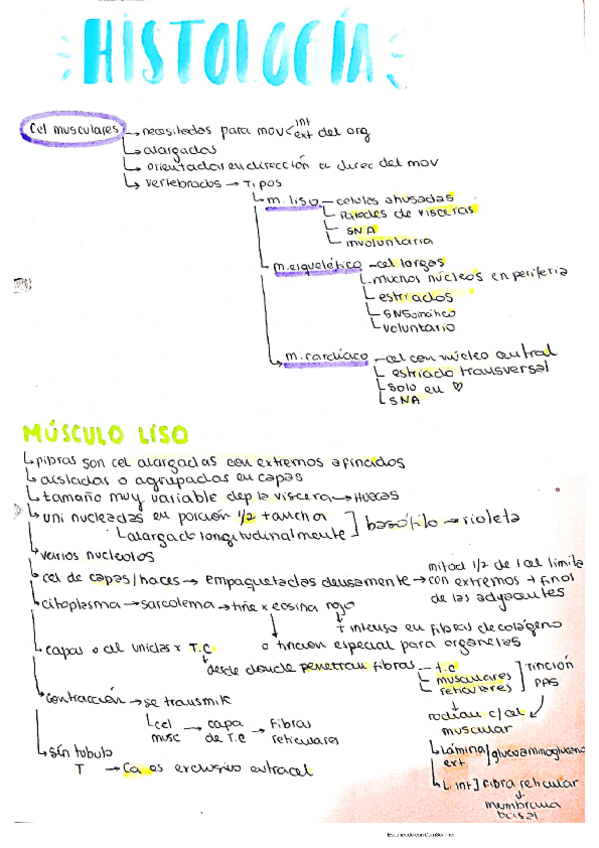 HISTOLOGÍA
Cel musculares → necesitadas para mov < int ext del org
→ alargadas
→ orientadas en dirección a direc del mov
→ vertebrados → Tipos
m. liso - celulas ahusadas
Paredes de visceras
SNA
involuntaria
m. esquelético - cel largas
muchos núcleos en periferia
estriados
SNSomático
voluntario
m. cardíaco - cel con núcleo central
estriado transversal
solo en ♡
SNA
MÚSCULO LISO
fibras son cel alargadas con extremos afinados
aisladas o agrupadas en capas
tamaño muy variable dep la viscera → Huecas
uni nucleadas en porción 1/2 + ancha
alargado longitudinalmente ] basófilo → violeta
varios nucleolos
cel de capas/haces → empaquetadas densamente → mitad 1/2 de 1 cel limita con extremos + finos de las adyacentes
citoplasma → sarcolema → tiñe x eosina rojo
+ intenso en fibras de colágeno
o tinción especial para organelas
capas o cel unidas x T.C
desde donde penetran fibras - t.c
musculares
reticulares ] TINCIÓN PAS
rodean c/cel muscular
contracción → se transmite
cel musc → capa de T.C → Fibras reticulares
Lámina ext / glucosaminoglucano
L int ] fibra reticular
membrana basal
sin tubulo T → Ca es exclusivo extracel
Escaneado con CamScanner